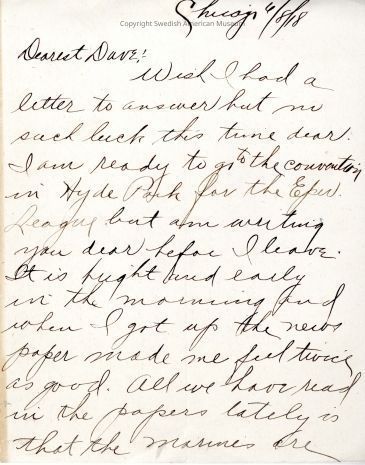 Copyright Swedish American Museum
Chicago 6/8/18
Dearest Dave!:
Wish I had a
letter to answer but no
such luck this time dear.
I am ready to go to the convention
in Hyde Park for the Epw.
League but am writing
you dear before I leave.
It is bright and early
in the morning and
when I got up the news
paper made me feel twice
as good. All we have read
in the papers lately is
that the marines are